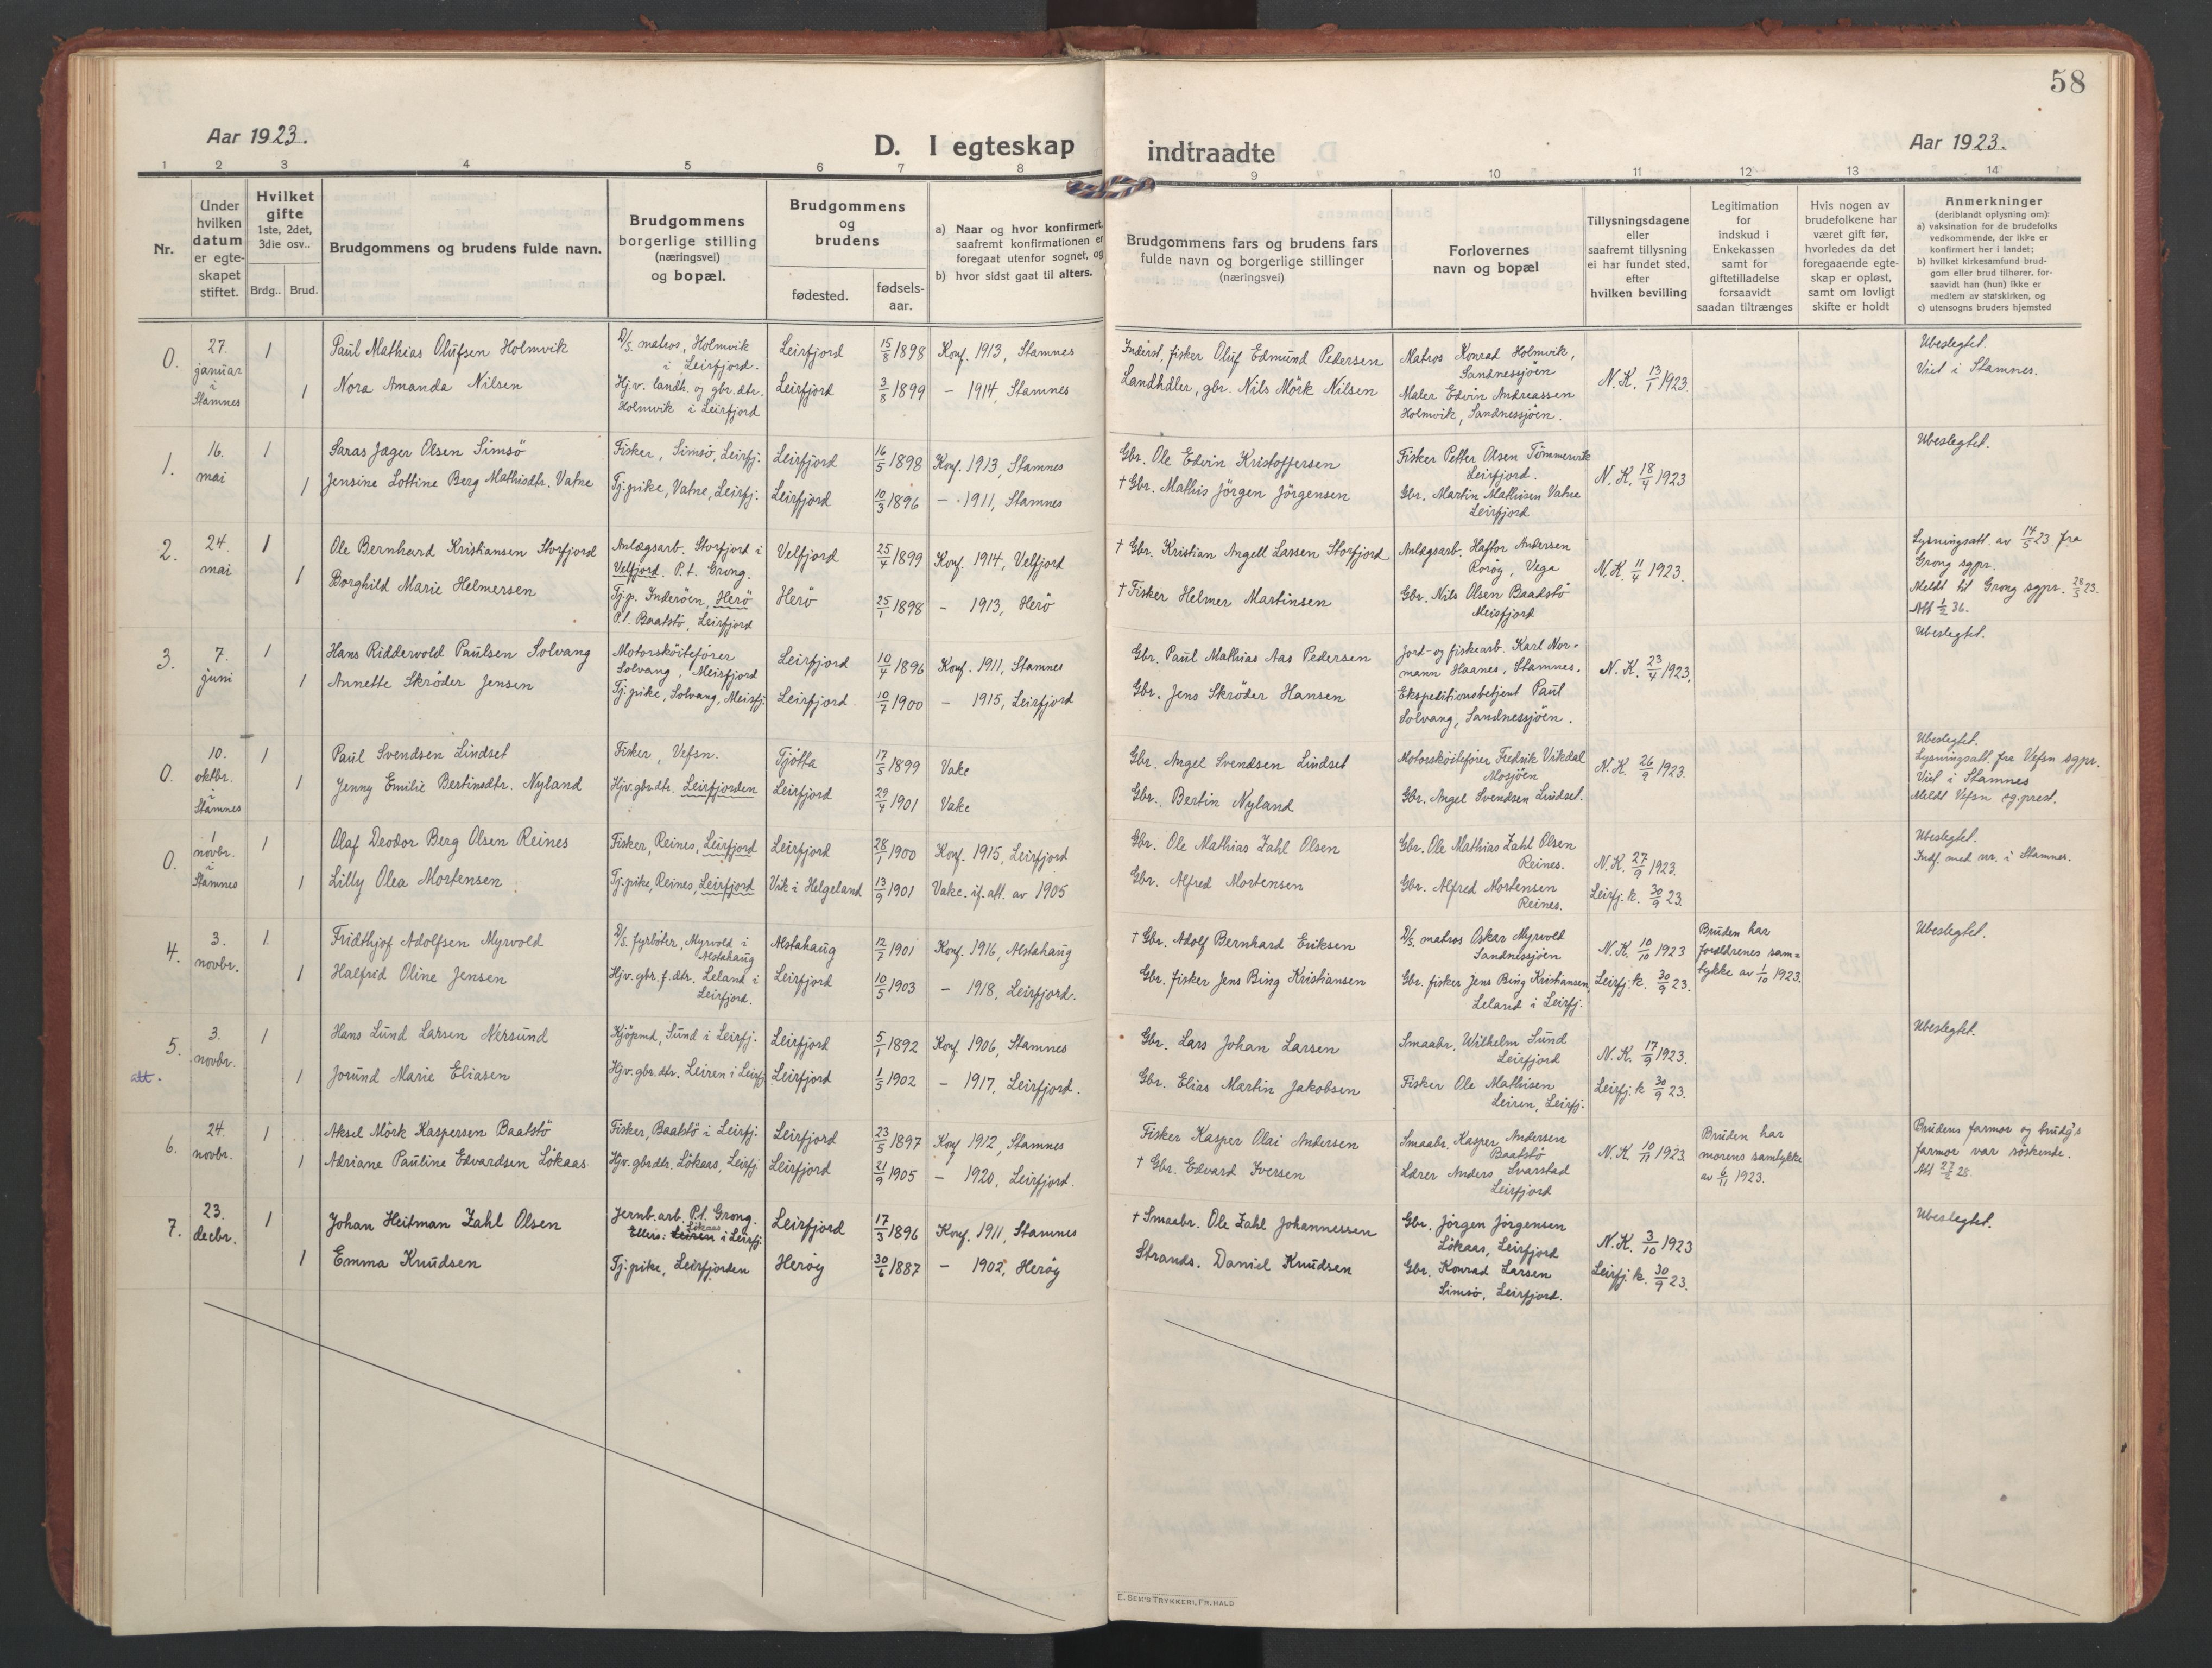 58
Aar 1923.
D. I egteskap
indtraadte
Aar 1923.
1 2 3 4 5 6 7 8 9 10 11 12 13 14
Nr.
Under hvilken datum er egteskapet stiftet.
Hvilket gifte 1ste, 2det, 3die osv..
Brdg.. Brud.
Brudgommens og brudens fulde navn.
Brudgommens borgerlige stilling (næringsvei) og bopæl.
Brudgommens og brudens
fødested.
fødsels-aar.
a) Naar og hvor konfirmert, saafremt konfirmationen er foregaat utenfor sognet, og
b) hvor sidst gaat til alters.
Brudgommens fars og brudens fars fulde navn og borgerlige stillinger (næringsvei)
Forlovernes navn og bopæl
Tillysningsdagene eller saafremt tillysning ei har fundet sted, efter hvilken bevilling
Legitimation for indskud i Enkekassen samt for giftetilladelse forsaavidt saadan tiltrænges
Hvis nogen av brudefolkene har været gift før, hvorledes da det foregaaende egteskap er opløst, samt om lovligt skifte er holdt
Anmerkninger
(deriblandt oplysning om):
a) vaksination for de brudefolks vedkommende, der ikke er konfirmert her i landet;
b) hvilket kirkesamfund brudgom eller brud tilhører, forsaavidt han (hun) ikke er medlem av statskirken, og
c) utensogns bruders hjemsted
0. 27. januar i Stamnes
1 Paul Mathias Olufsen Holmvik
D/s. matros, Holmvik i Leirfjord.
Leirfjord 15/8 1898 Konf. 1913, Stamnes
Inderst, fisker Oluf Edmund Pedersen
Matros Konrad Holmvik, Sandnessjöen
N.K. 13/1 1923.
Ubeslegtet.
Viet i Stamnes.
1 Nora Amanda Nilsen
Hj.v. landh. og gbr. dtr. Holmvik i Leirfjord
Leirfjord 3/8 1899 – 1914, Stamnes
Landhdler, gbr. Nils Mörk Nilsen
Maler Edvin Andreassen Holmvik, Sandnessjöen.
1. 16. mai
1 Saras Jæger Olsen Simsö
Fisker, Simsö, Leirfj.
Leirfjord 16/5 1898 Konf. 1913, Stamnes
Gbr. Ole Edvin Kristoffersen
Fisker Petter Olsen Tömmervik Leirfjord.
N.K. 18/4 1923
Ubeslegtet.
1 Jensine Lottine Berg Mathisdtr. Vatne
Tj.pike, Vatne, Leirfj.
Leirfjord 10/3 1896 – 1911, Stamnes
† Gbr. Mathis Jörgen Jörgensen
Gbr. Martin Mathisen Vatne Leirfjord
2. 24. mai
1 Ole Bernhard Kristiansen Storfjord
Anlægsarb. Storfjord i Velfjord. P.t. Grong.
Velfjord 25/4 1899 Konf. 1914, Velfjord
† Gbr. Kristian Angell Larsen Storfjord
Anlægsarb. Haftor Andersen Rorøy, Vega
N.K. 11/4 1923.
Lysningsatt. av 14/5 23 fra Grong sgpr.
Meldt til Grong sgpr. 28/5 23.
Att 1/2 36.
1 Borghild Marie Helmersen
Tj.p. Inderöen, Herö P.t. Baatstö, Leirfjord
Herö 25/1 1898 – 1913, Herö
† Fisker Helmer Martinsen
Gbr. Nils Olsen Baadstö Meisfjord
3. 7. juni
1 Hans Riddervold Paulsen Solvang
Motorsköitefører Solvang, Meisfjord
Leirfjord 10/4 1896 Konf. 1911, Stamnes
Gbr. Paul Mathias Aas Pedersen
Jord- og fiskearb. Karl Normann Haanes, Stamnes.
N.K. 23/4 1923.
Ubeslegtet.
1 Annette Skröder Jensen
Tj.pike, Solvang, Meisfj.
Leirfjord 10/7 1900 – 1915, Leirfjord
Gbr. Jens Skröder Hansen
Ekspeditionsbetjent Paul Solvang, Sandnessjöen.
0. 10. oktbr. i Stamnes
1 Paul Svendsen Lindset
Fisker, Vefsn.
Tjötta 17/5 1899 Vakc
Gbr. Angel Svendsen Lindset
Motorsköitefører Fredrik Vikdal Mosjöen
N.K. 26/9 1923.
Ubeslegtet.
Lysningsatt. fra Vefsn sgpr.
Viet i Stamnes
Meldt Vefsn sg.prest.
1 Jenny Emilie Bertinsdtr. Nyland
Hjv. gbr.dtr. Leirfjorden
Leirfjord 29/4 1901 Vakc
Gbr. Bertin Nyland
Gbr. Angel Svendsen Lindset.
0. 1 novbr. i Stamnes
1 Olaf Deodor Berg Olsen Reines
Fisker, Reines, Leirfjord
Leirfjord 28/1 1900 Konf. 1915, Leirfjord
Gbr. Ole Mathias Zahl Olsen
Gbr. Ole Mathias Zahl Olsen Reines.
N.K. 27/9 1923.
Ubeslegtet.
Indf. med nr. i Stamnes.
1 Lilly Olea Mortensen
Tj.pike, Reines, Leirfjord
Vik i Helgeland 13/9 1901 Vakc. if. att. av 1905
Gbr. Alfred Mortensen
Gbr. Alfred Mortensen Reines.
Leirfj. k. 30/9 23.
4. 3. novbr.
1 Fridthjof Adolfsen Myrvold
D/s. fyrböter, Myrvold i Alstahaug
Alstahaug 12/7 1901 Konf. 1916, Alstahaug
† Gbr. Adolf Bernhard Eriksen
D/s. matros Oskar Myrvold Sandnessjöen
N.K. 10/10 1923
Bruden har forældrenes samtykke av 1/10 1923.
Ubeslegtet.
1 Halfrid Oline Jensen
Hjv. gbr. f. dtr. Leland i Leirfjord.
Leirfjord 10/5 1903 – 1918, Leirfjord.
Gbr. fisker Jens Bing Kristiansen
Gbr. fisker Jens Bing Kristiansen, Leland i Leirfj.
Leirfj. k. 30/9 23.
5. att. 3. novbr.
1 Hans Lund Larsen Nersund
Kjöpmd, Sund i Leirfj.
Leirfjord 5/1 1892 Konf. 1906, Stamnes
Gbr. Lars Johan Larsen
Smaabr. Wilhelm Sund Leirfjord
N.K. 17/9 1923.
Ubeslegtet.
1 Jorund Marie Eliasen
Hjv. gbr.dtr. Leiren i Leirfj.
Leirfjord 1/5 1902 – 1917, Leirfjord.
Gbr. Elias Martin Jakobsen
Fisker Ole Mathisen Leiren, Leirfj.
Leirfj. k 30/9 23.
6. 24. novbr.
1 Aksel Mörk Kaspersen Baatstö
Fisker, Baatstö i Leirfj.
Leirfjord 23/5 1897 Konf 1912, Stamnes
Fisker Kasper Olai Andersen
Smaabr. Kasper Andersen Baatstö
N.K. 10/11 1923.
Bruden har morens samtykke av 6/11 1923.
Brudens farmor og brudg's farmor var söskende.
Att 27/2 28.
1 Adriane Pauline Edvardsen Lökaas
Hjv. gbrdtr. Lökaas, Leirfj.
Leirfjord 21/9 1905 – 1920, Leirfjord.
† Gbr. Edvard Iversen
Lærer Anders Svarstad Leirfjord
7. 23. decbr.
1 Johan Heitman Zahl Olsen
Jernb.arb. P.t. Grong. Ellers: Leiren Lökaas i Leirfj.
Leirfjord 17/3 1896 Konf. 1911, Stamnes
† Smaabr. Ole Zahl Johannessen
Gbr. Jörgen Jörgensen Lökaas, Leirfjord
N.K. 3/10 1923
Ubeslegtet.
1 Emma Knudsen
Tj.pike, Leirfjorden
Herøy 30/6 1887 – 1902, Herøy
Strands. Daniel Knudsen
Gbr. Konrad Larsen Simsö, Leirfjord.
Leirfj. k. 30/9 23.
E. SEM'S TRYKKERI, FR.HALD